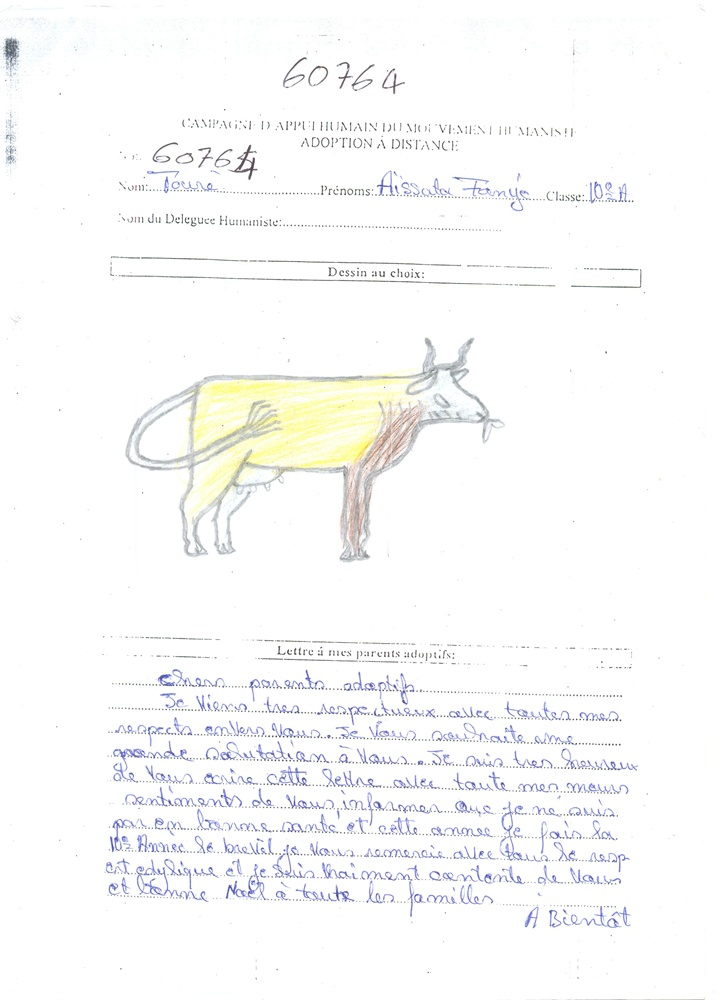 60764
CAMPAGNE D'APPUI HUMAIN DU MOUVEMENT HUMANISTE
ADOPTION À DISTANCE
No: 60764
Nom: Touré Prénoms: Aissata Fanyé Classe: 10e A
Nom du Deleguee Humaniste:
Dessin au choix:
Lettre á mes parents adoptifs:
chers parents adoptifs
Je Viens tres respectueux avec toutes mes
respects envers Vous. Je Vous souhaite une
grande salutation à Vous. Je suis tres heureux
de Vous écrire cette lettre avec toute mes
sentiments de Vous informer que je ne suis
par en bonne santé et cette annee je fais la
10e Année le brevet je Vous remercie avec tous le resp
ect et je suis Vraiment contente de Vous
et bonne Noël à toute les familles
A Bientôt